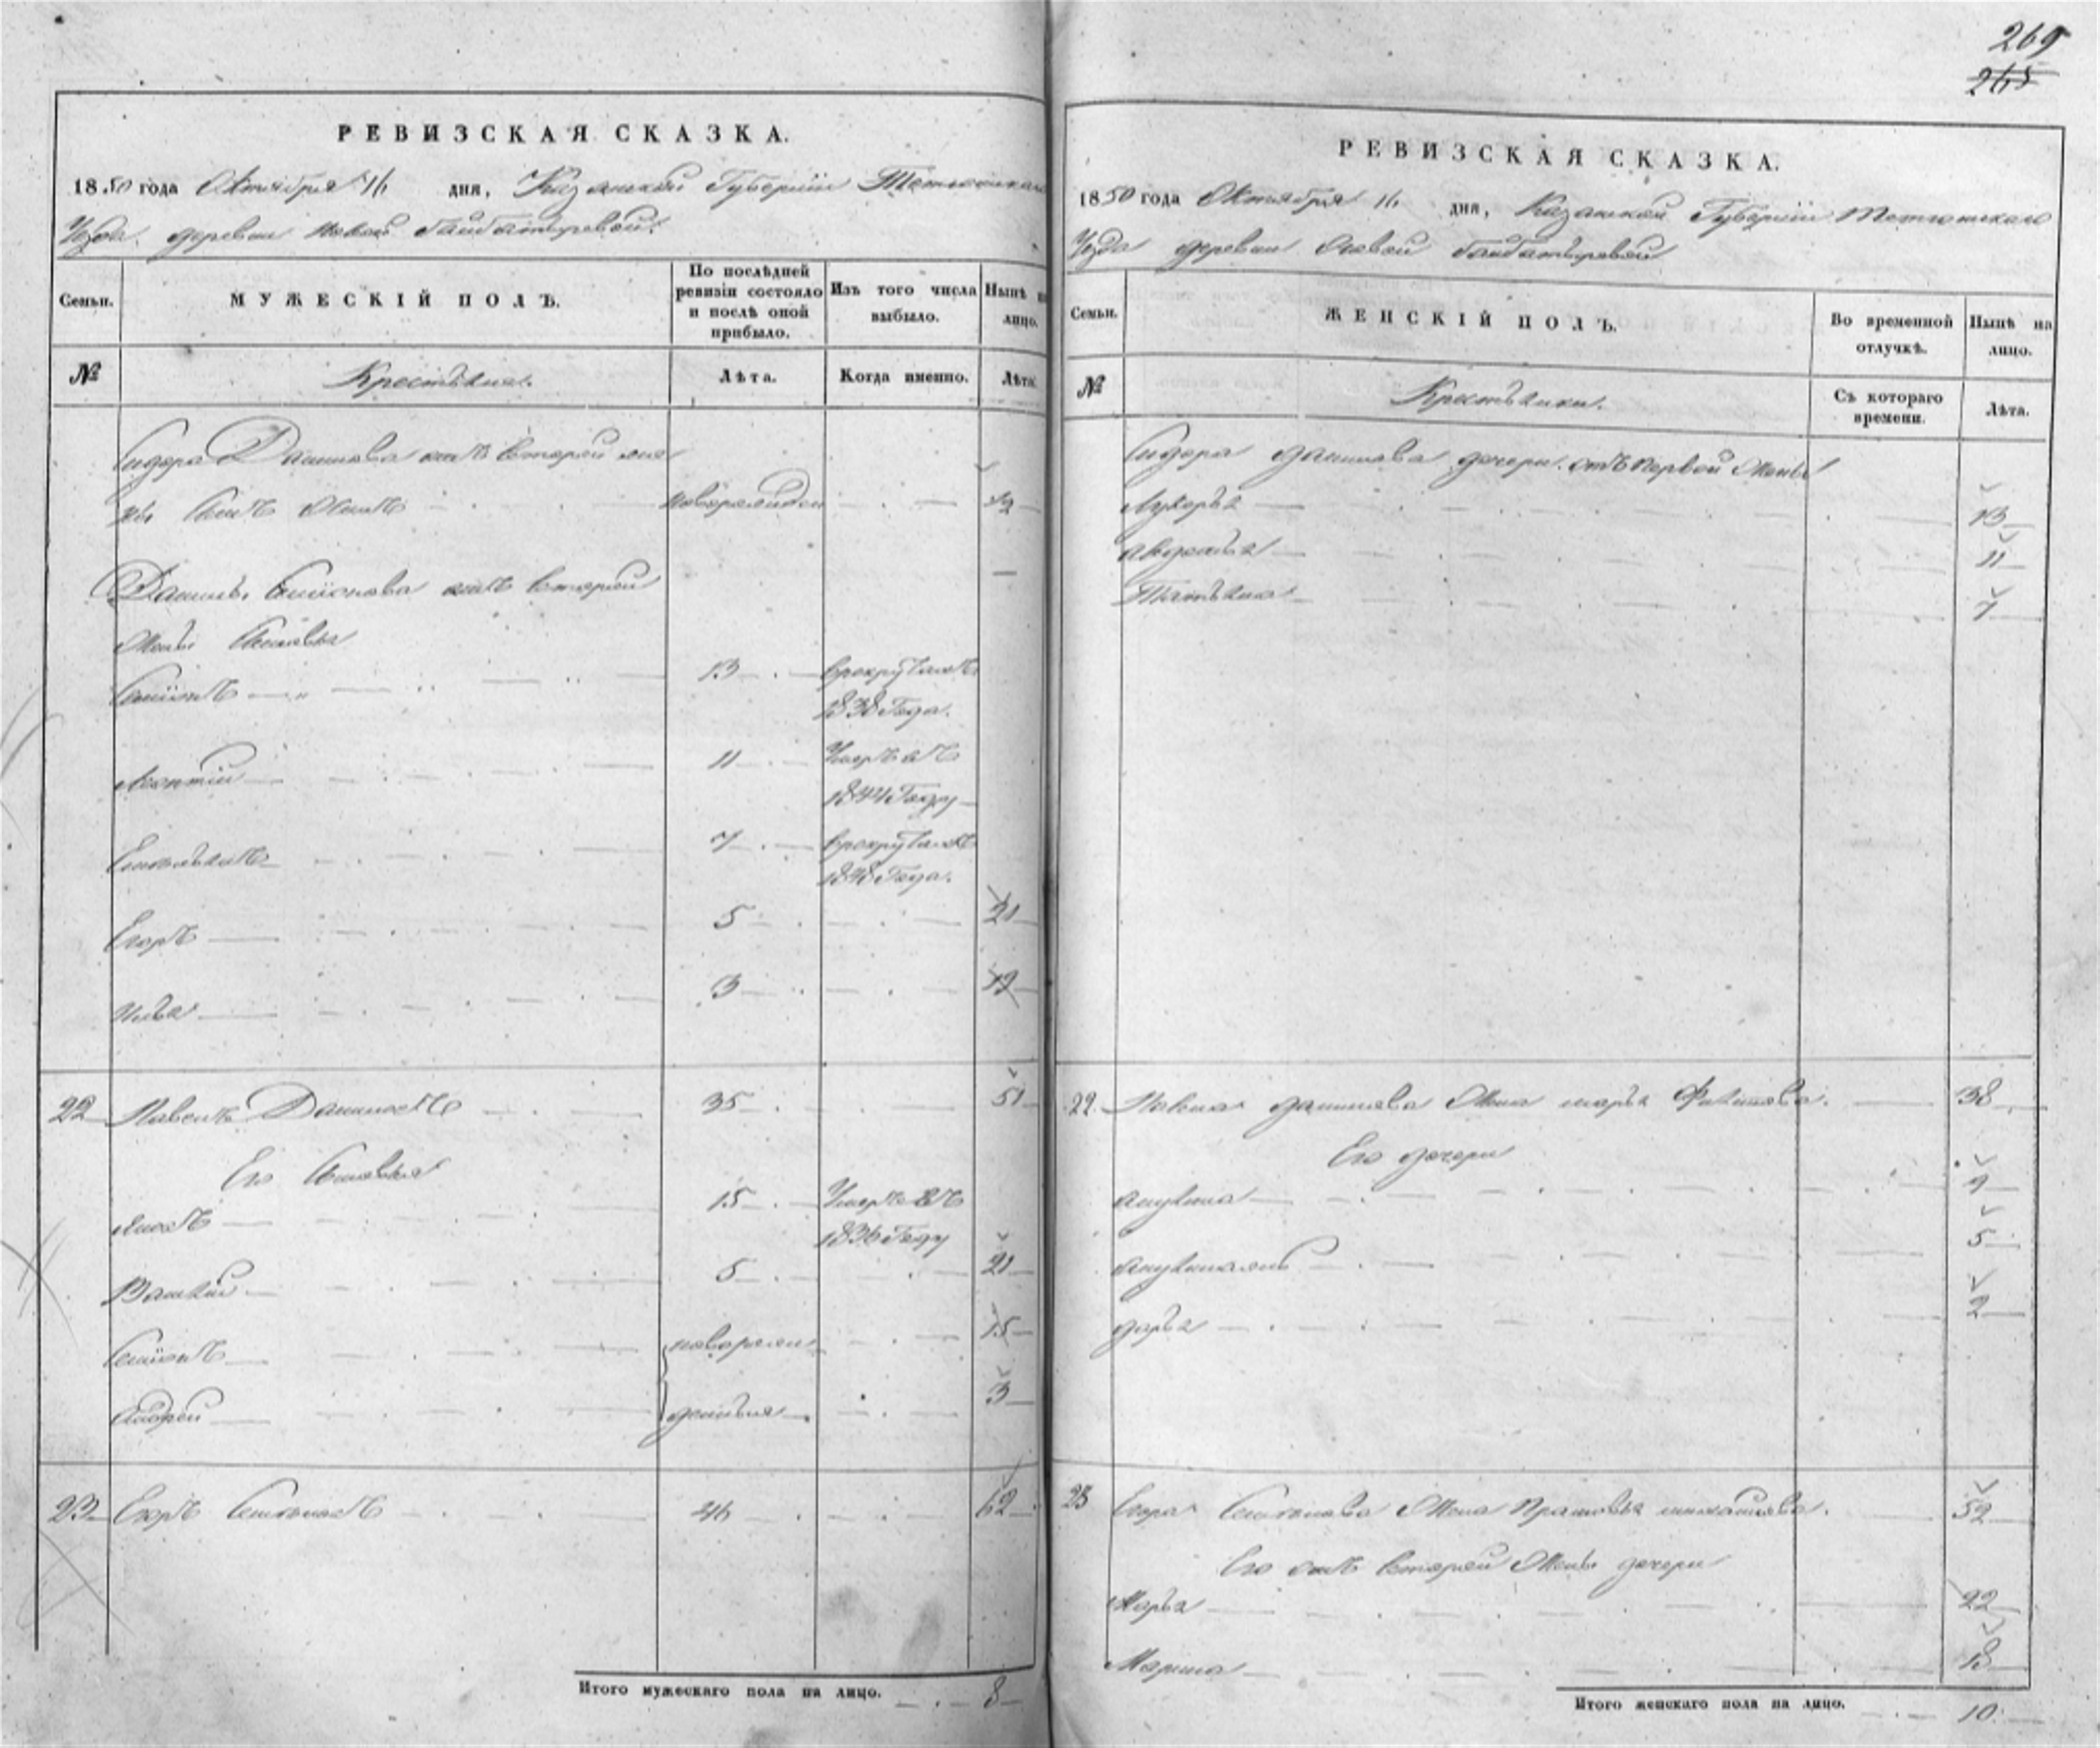 269
265
РЕВИЗСКАЯ СКАЗКА.
1850 года Октября 16 дня, Казанской Губернии Тетюшскаго
Уезда деревни Новой Байбатыревой.
Семьи. МУЖЕСКІЙ ПОЛЪ. По послѣдней ревизіи состояло и послѣ оной прибыло. Изъ того числа выбыло. Нынѣ на лицо.
№ Крестьяне. Лѣта. Когда именно. Лѣта.
Сидора Данилова отъ второй же
ны сынъ новорожден 12
Данилы Семіонова отъ второй
жены сыновья
Семіонъ 13 в рекруты
1838 Года.
Леонтій 11 Умеръ въ
1844 Году
Емельянъ 7 в рекруты
1848 Года.
Егоръ 5 21
Илья 3 19
22 Павелъ Даниловъ 35 51
Его сыновья
15 Умеръ въ
1836 Году
5 21
Семіонъ новорож 15
Андрей денныя 3
23 Егоръ Семеновъ 46 62
Итого мужескаго пола на лицо. 8
РЕВИЗСКАЯ СКАЗКА.
1850 года Октября 16 дня, Казанской Губернии Тетюшскаго
Уезда деревни Новой Байбатыревой
Семьи. ЖЕНСКІЙ ПОЛЪ. Во временной отлучкѣ. Нынѣ на лицо.
№ Крестьянки. Съ котораго времени. Лѣта.
Сидора Данилова дочери отъ первой жены
Лукерья 13
Авдотья 11
Татьяна 7
22 Павла Данилова жена Марья 38
Его дочери
9
5
Дарья 2
23 Егора Семенова жена Прасковья Михайлова. 52
Его отъ второй жены дочери
Марья 22
Марина 18
Итого женскаго пола на лицо. 10